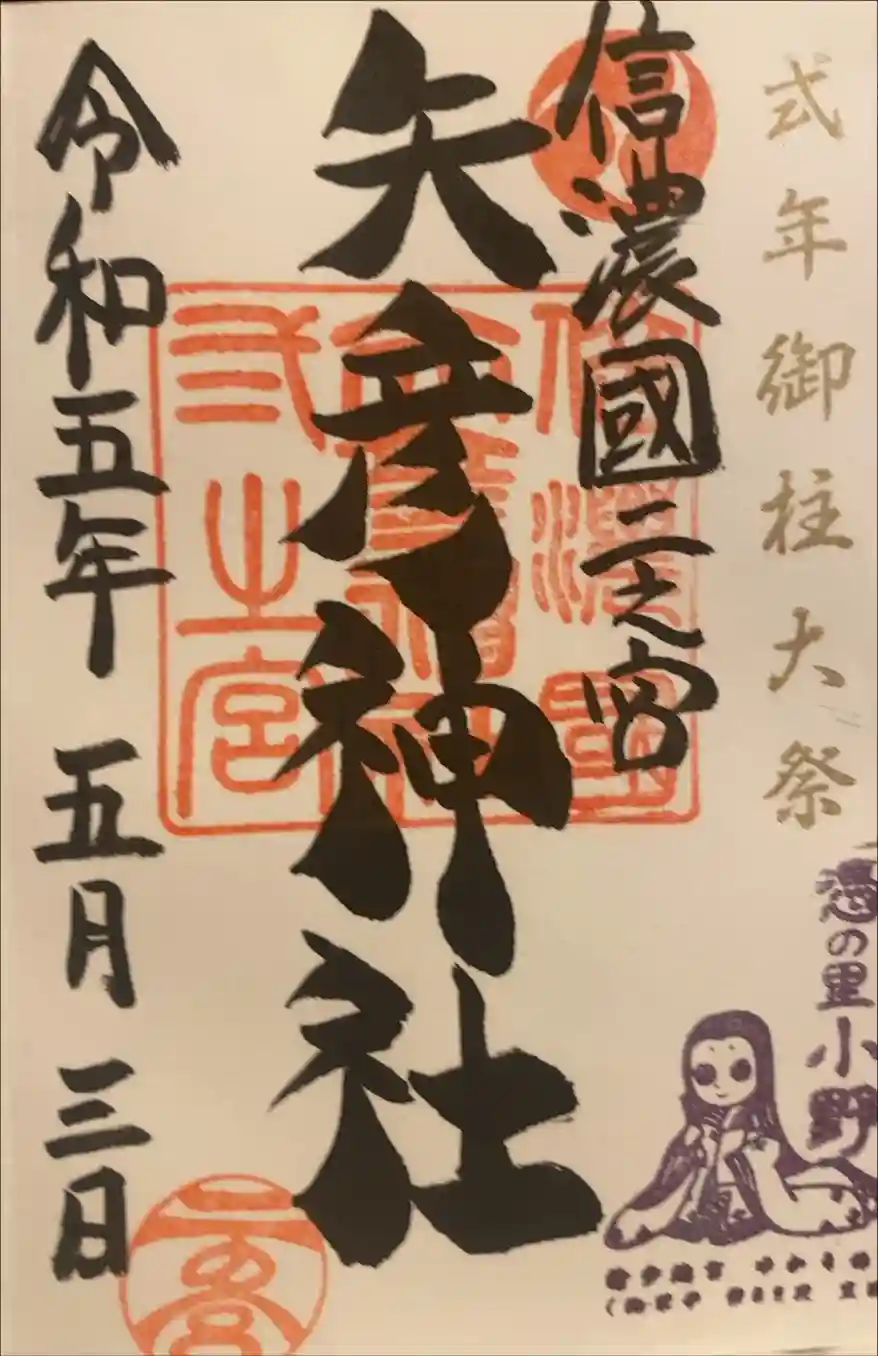 式年御柱大祭
信濃國二之宮
矢彦神社
令和五年 五月 三日
信濃國
矢彦神社
弐之宮
憑の里
小野